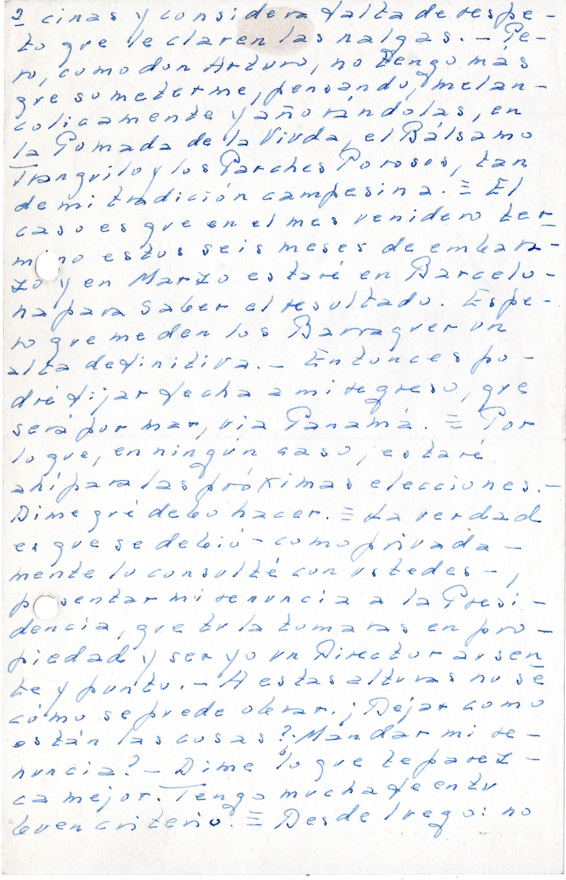 2 cinas y considera falta de respe-
to que le claven las nalgas.- Pe-
ro, como don Arturo, no tengo más
que someterme, pensando, melan-
colicamente y añorándolas, en
la Pomada de la Viuda, el Bálsamo
Tranquilo y los Parches Porosos, tan
de mi tradición campesina. ≡ El
caso es que en el mes venidero ter-
mino estos seis meses de embara-
zo y en Marzo estaré en Barcelo-
na para saber el resultado. Espe-
ro que me den los Barraquer un
alta definitiva.- Entonces po-
dré fijar fecha a mi regreso, que
será por mar, via Panamá. ≡ Por
lo que, en ningún caso, estaré
ahí para las próximas elecciones.-
Dime qué debo hacer. ≡ La verdad
es que se debió - como privada-
mente lo consulté con ustedes -,
presentar mi renuncia a la Presi-
dencia, que tu la tomaras en pro-
piedad y ser yo un Director ausen-
te y punto.- A estas alturas no sé
cómo se puede obrar. ¿Dejar como
están las cosas? ¿Mandar mi re-
nuncia?- Dime lo que te parez-
ca mejor. Tengo mucha fe en tu
buen criterio. ≡ Desde luego: no